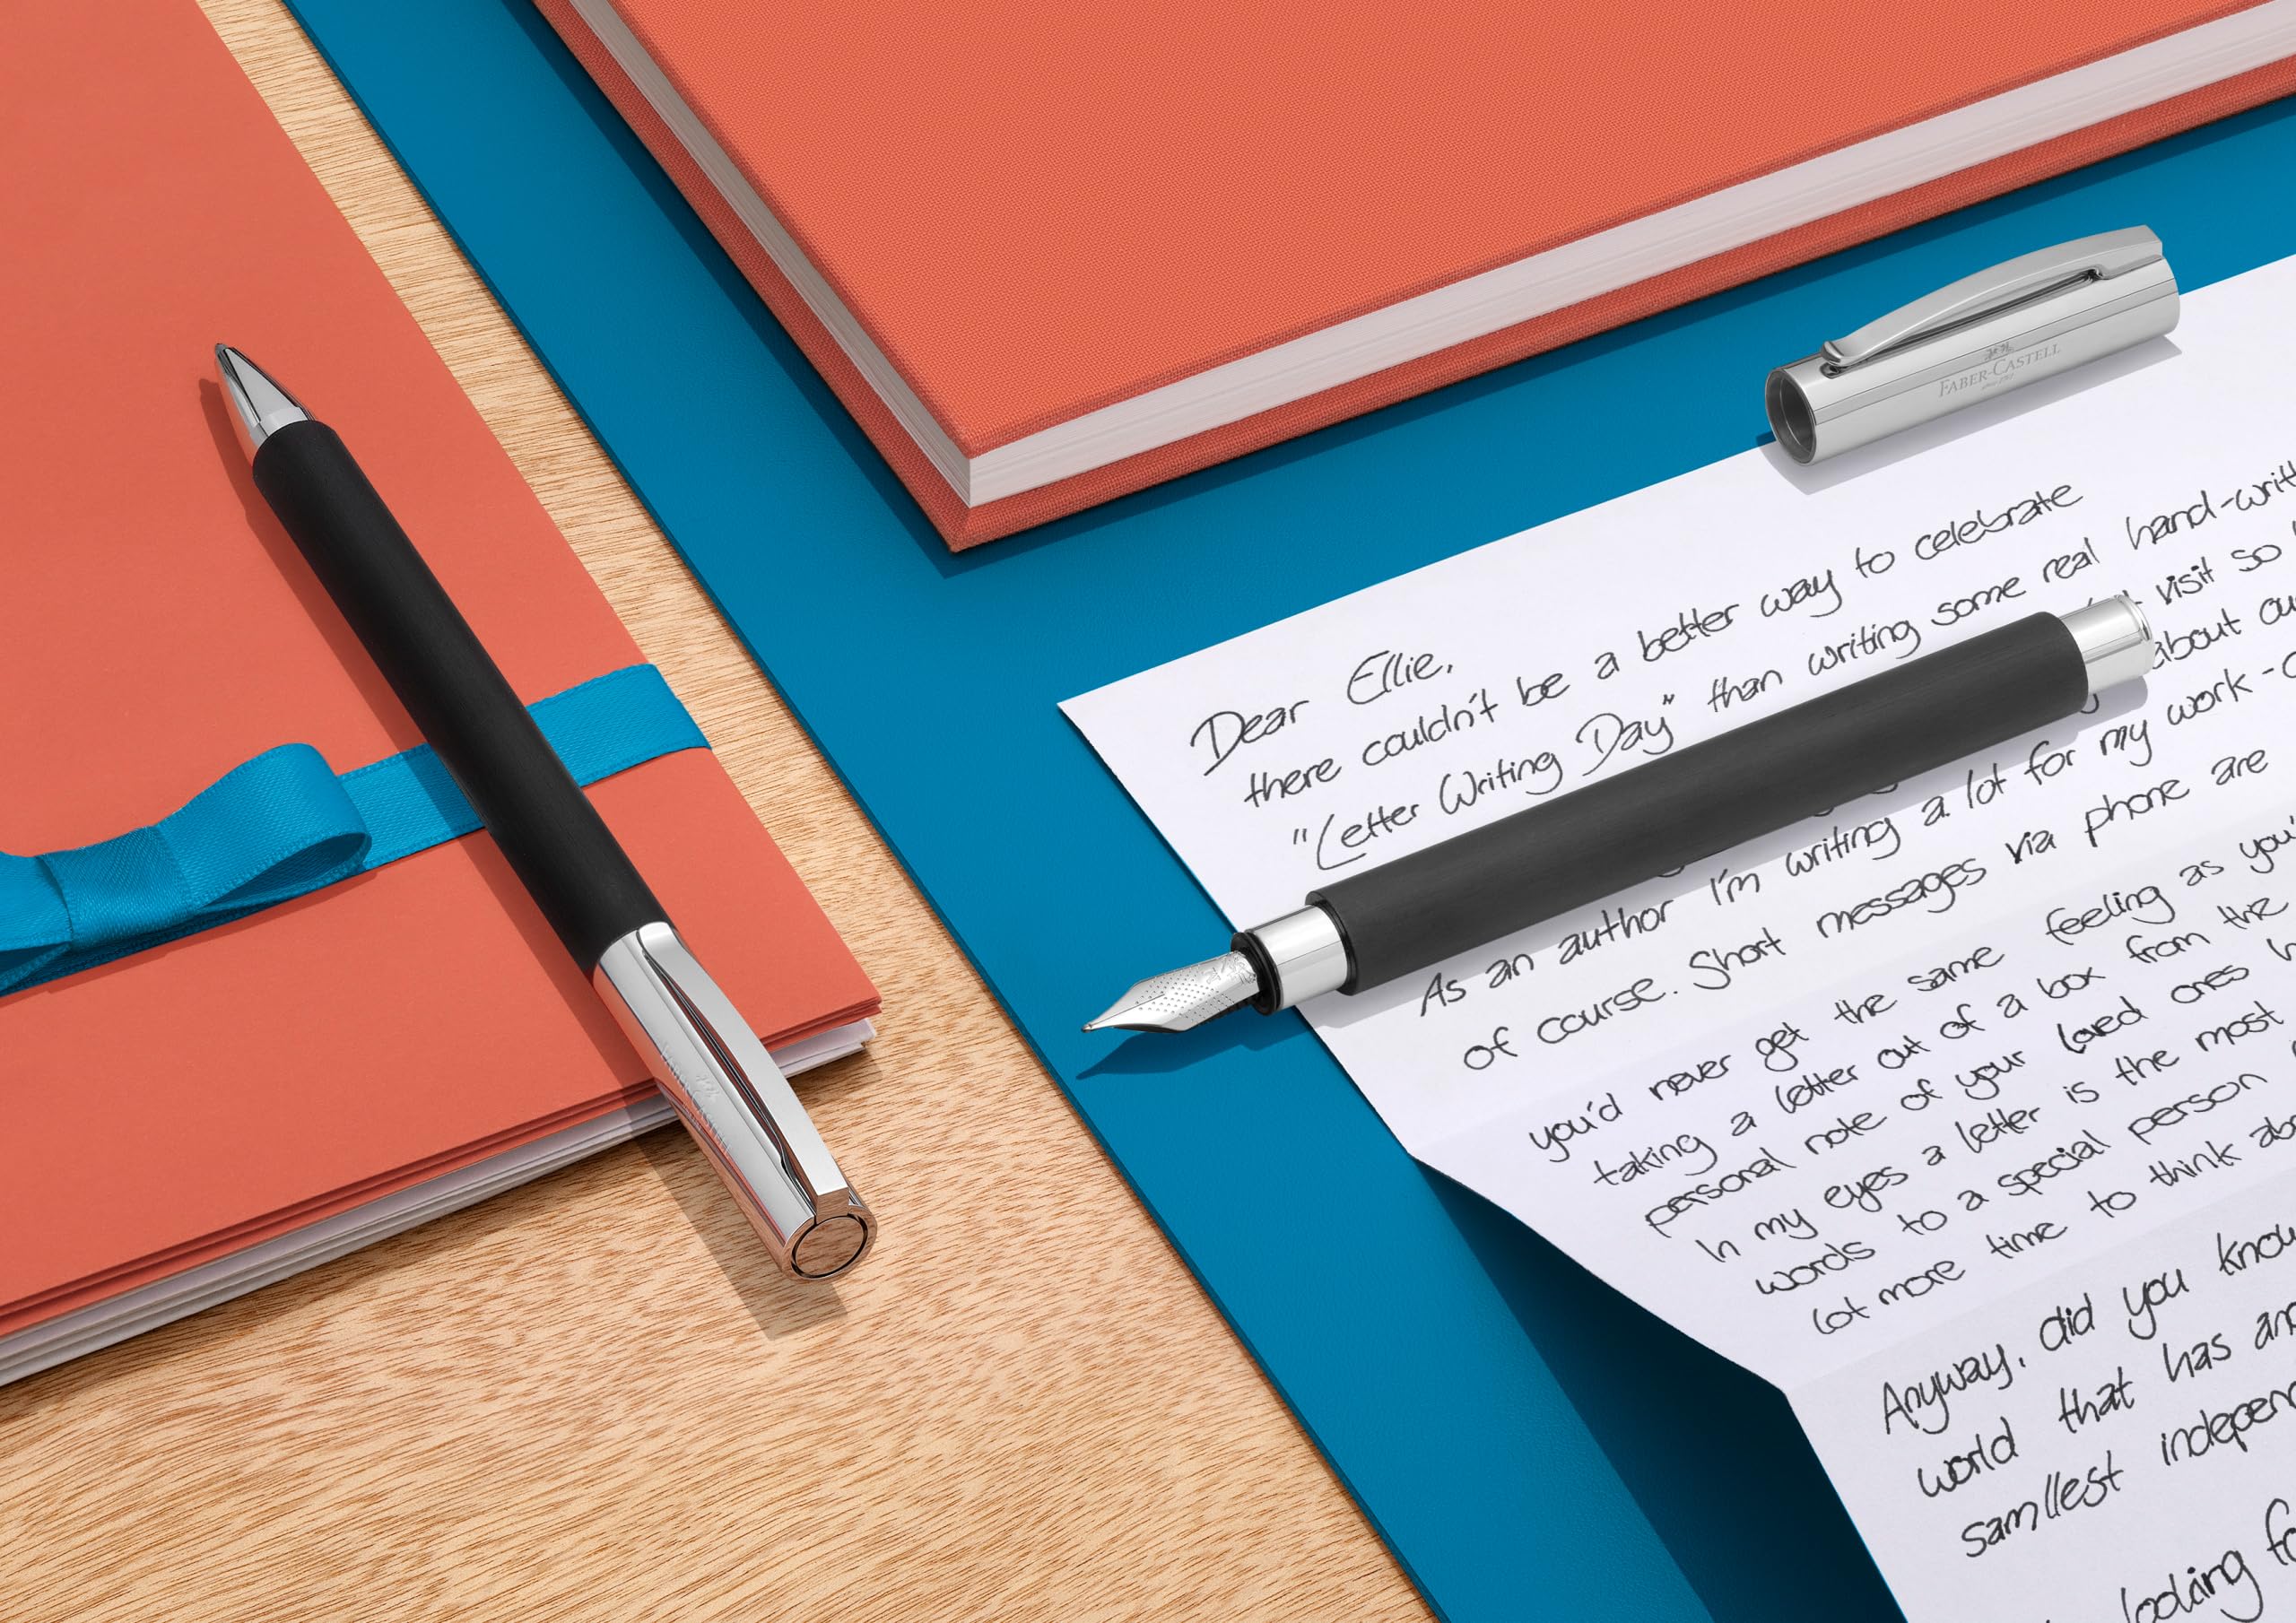 FABER-CASTELL
Dear Ellie,
there couldn't be a better way to celebrate
"Letter Writing Day" than writing some real hand-writ
visit so
about
As an author I'm writing a lot for my work-
of course. Short messages via phone are
you'd never get the same feeling as you'
taking a letter out of a box from the
personal note of your loved ones
In my eyes a letter is the most
words to a special person
lot more time to think
Anyway, did you know
world that has
samllest indepen
looking